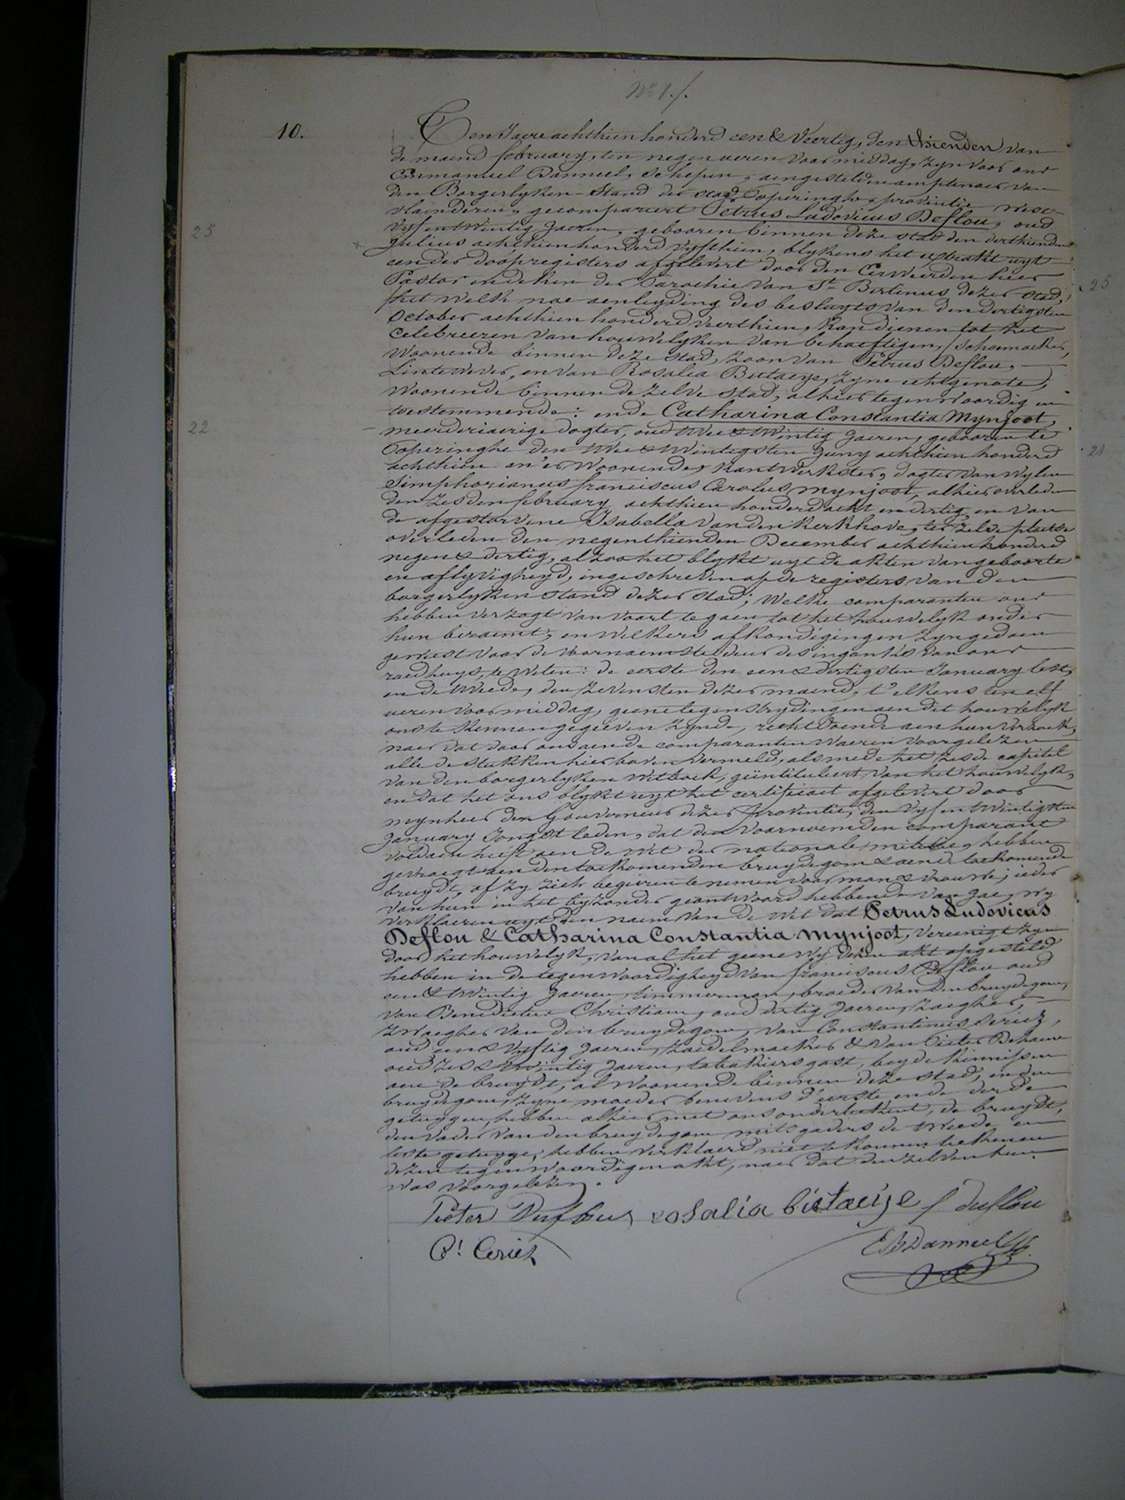 N° 7./.
10.
Den Jaere achthien honderd een & Veertig, den thienden van
de maend february, ten negen ueren voor middag, zyn voor ons
Emmanuel Danneel, Schepen, aengestelden amptenaer van
den Borgerlyken Stand der stad Poperinghe, provintie West-
vlaenderen, gecompareert Petrus Ludovicus Deflou, oud
25
vyf en twintig jaeren, geboren binnen deze stad den derthienden
Julius achthien honderd vyfthien, blykens het extrakt uyt
een der doopregisters afgelevert door den Eerweerden heer
Pastor en deken der Parochie van St Bertinus dezer stad,
het welk nae aenleyding des besluyts van den dertigsten
25
October achthien honderd veerthien, kan dienen tot het
celebreeren van houwelyken van behoeftigen, schoenmaeker,
Woonende binnen deze stad, zoon van Petrus Deflou,
Lintwever, en van Rosalia Butaeye, zyne echtgenote,
woonende binnen de zelve stad, alhier tegenwoordig en
toestemmende: ende Catharina Constantia Mynjoot,
22
meerderjaerige dogter, oud twee & twintig jaeren, geboren te
Poperinghe den twee & twintigsten Juny achthien honderd
21
achthien en er woonende, kantwerkster, dogter van wylen
Simphorianus franciscus Carolus Mynjoot, alhier overleden
den zesden february achthien honderd acht en dertig, en van
de afgestorvene Isabella Vanden Kerkhove, ter zelve plaetse
overleden den negenthienden December achthien honderd
negen & dertig, al zoo het blykt uyt de akten van geboorte
en aflyvigheyd, ingeschreven op de registers van den
borgerlyken stand dezer stad; Welke comparanten ons
hebben verzogt van voort te gaen tot het houwelyk onder
hun beraemt, en welkers afkondigingen zyn gedaen
geweest voor de voornaemste deur des ingangs van ons
raedhuys, te weten: de eerste den een & dertigsten January lest,
en de tweede, den zevensten dezer maend, t'elkens ten elf
ueren voormiddag, geene tegenstrydingen aen dit houwelyk
ons te kennen gegeven zynde, recht doende aen hun verzoek,
naer dat door ons aen de comparanten waeren voorgelezen
alle de stukken hier boven vermeld, als mede het zesde capitel
van den borgerlyken Wetboek, geintituleert van het houwelyk,
en dat het ons blykt uyt het certificaet afgelevert door
mynheer den Gouverneur dezer Provintie, den vyf en twintigsten
January Jongst leden, dat den voornoemden comparant
voldaen heeft aen de Wet der nationale militie, hebben
gevraegt aen den toekomenden bruydegom & aen de toekomende
bruydt, of zy zich begeeren te nemen voor man & vrouwe; ieder
van hun in het byzonder geantwoord hebbende van Jae, wy
verklaeren uyt den naem van de Wet dat Petrus Ludovicus
Deflou & Catharina Constantia Mynjoot, vereenigt zyn
door het houwelyk; van al het geene wy dezen akt opgesteld
hebben in de tegenwoordigheyd van franciscus Deflou oud
een & twintig jaeren, timmerman, broeder van den bruydegom,
van Benedictus Christiaen, oud dertig jaeren, zaeger,
zwaeger van den bruydegom, van Constantinus Seriez,
oud een & vyftig jaeren, zaedelmaeker & van Pieter Dehaene
oud zes & twintig jaeren, tabakiers gast, beyde kennissen
aen de bruydt, al woonende binnen deze stad; en den
bruydegom, zyne moeder benevens d'eerste ende derde
getuygen, hebben alhier met ons onderteekent, de bruydt,
den vader van den bruydegom mitsgaders de tweede en
leste getuyge, hebben verklaerd niet te konnen teekenen
dezen tegenwoordigen akt, naer dat den zelven hun
was voorgelezen.
Pieter Duflou rosalia butaeije f duflou
Ct Ceriez
E B Danneel